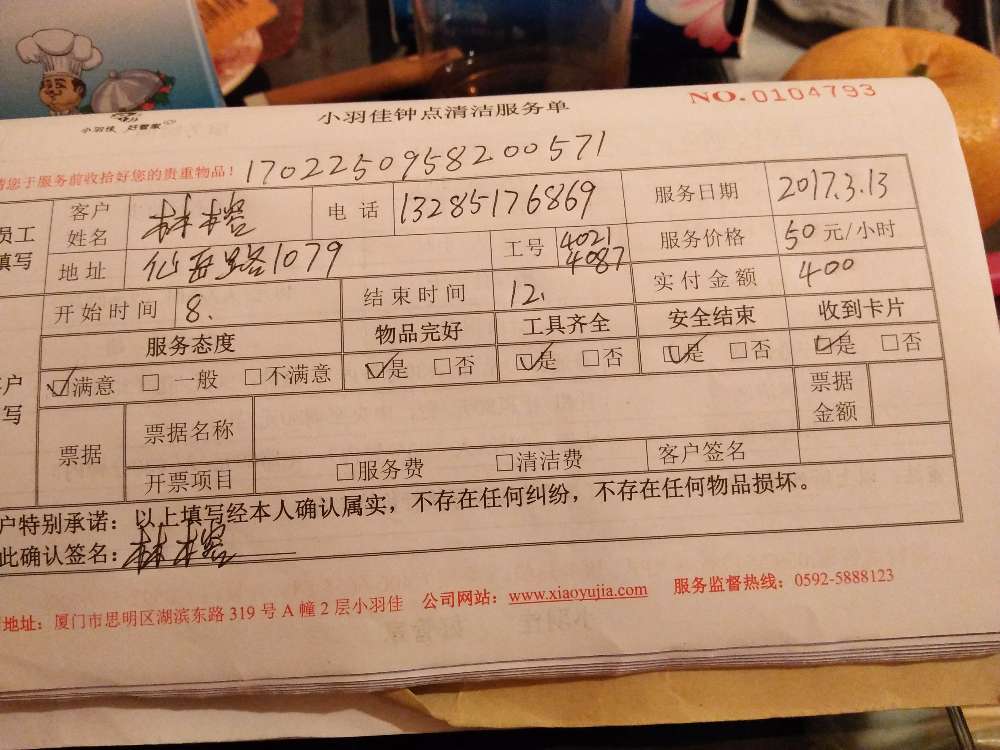 小羽佳 好管家
小羽佳钟点清洁服务单 NO.0104793
请您于服务前收拾好您的贵重物品! 1702250958200571
员工填写
客户姓名 林榕 电话 13285176869 服务日期 2017.3.13
地址 仙岳路1079 工号 4021 4087 服务价格 50元/小时
开始时间 8. 结束时间 12. 实付金额 400
服务态度 物品完好 工具齐全 安全结束 收到卡片
☑满意 □一般 □不满意 ☑是 □否 ☑是 □否 ☑是 □否 ☑是 □否
票据 票据名称 票据金额
开票项目 □服务费 □清洁费 客户签名
户特别承诺：以上填写经本人确认属实，不存在任何纠纷，不存在任何物品损坏。
此确认签名：林榕
地址：厦门市思明区湖滨东路319号A幢2层小羽佳 公司网站：www.xiaoyujia.com 服务监督热线：0592-5888123